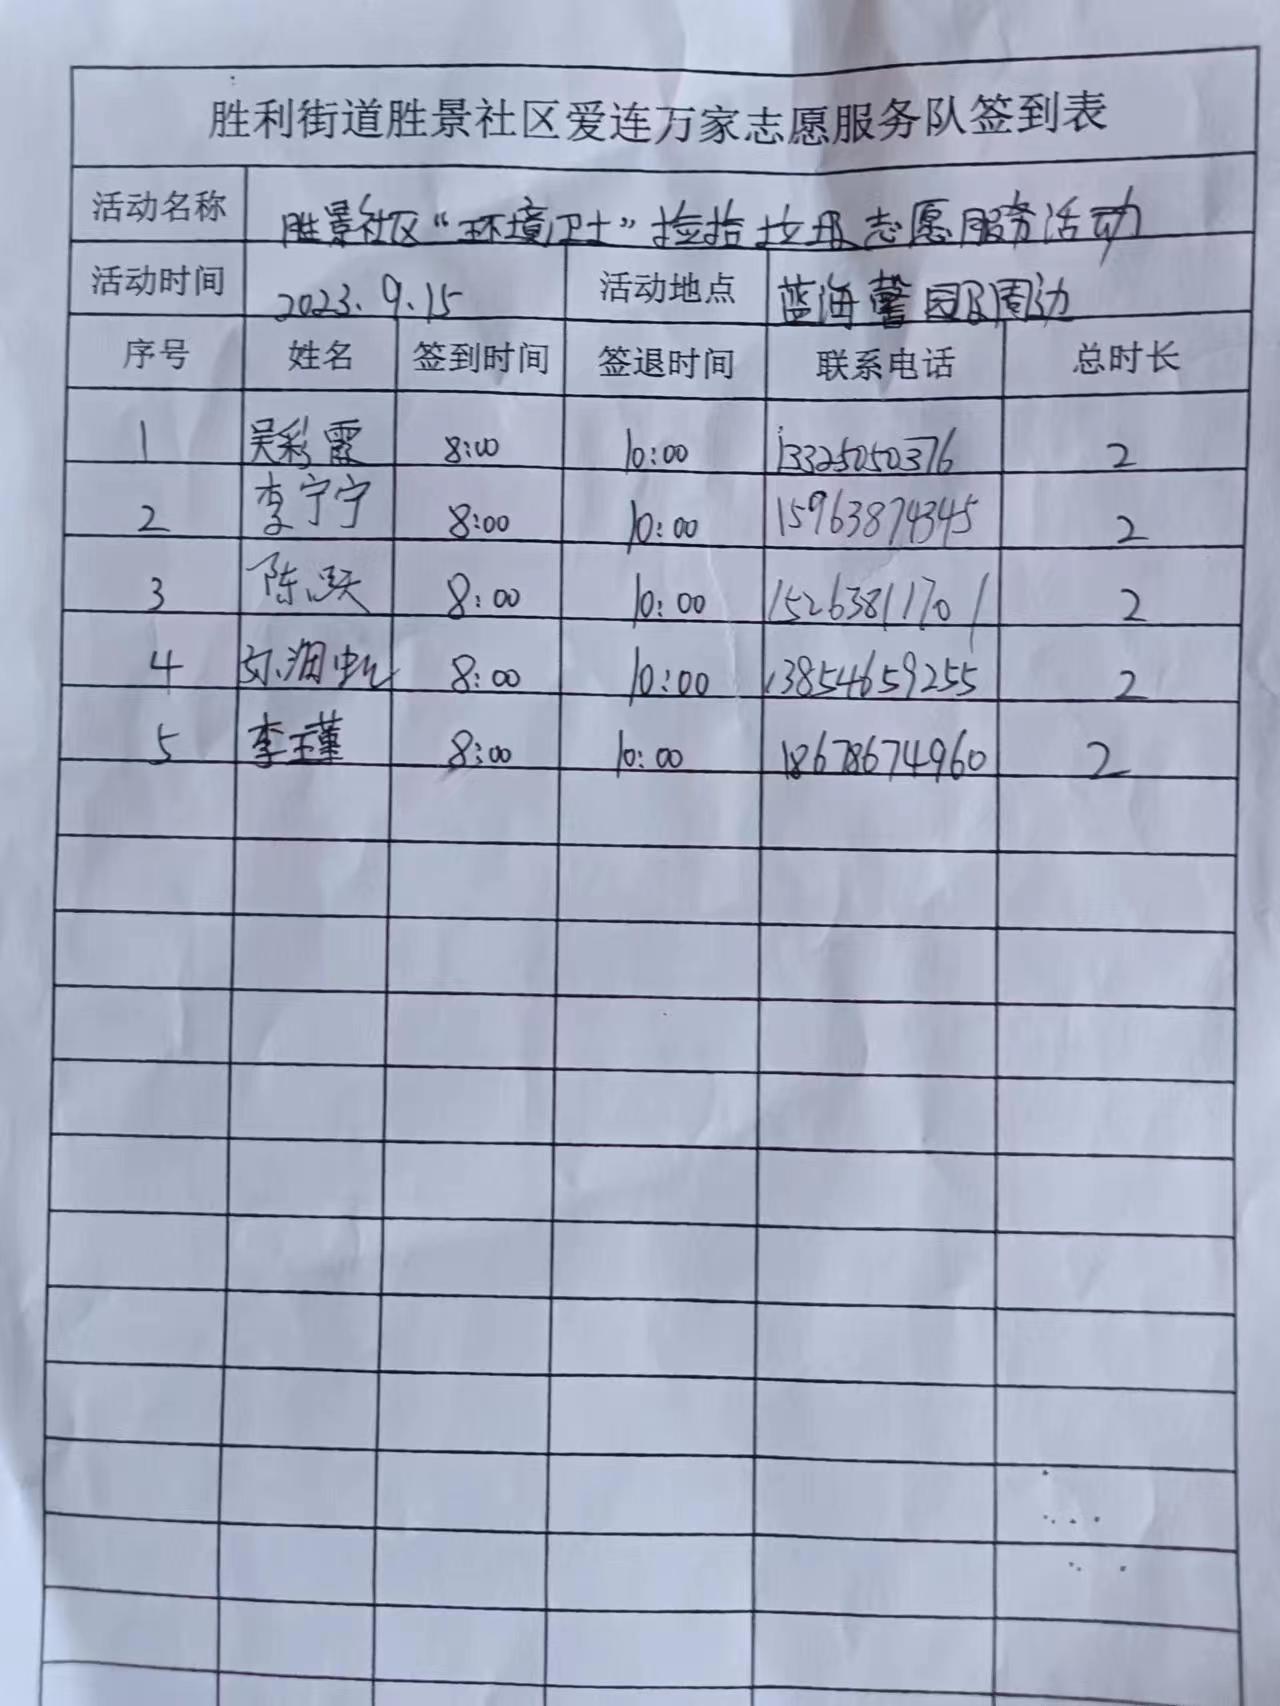 胜利街道胜景社区爱连万家志愿服务队签到表
活动名称 胜景社区“环境卫士”捡拾垃圾志愿服务活动
活动时间 2023.9.15 活动地点 蓝海馨园及周边
序号 姓名 签到时间 签退时间 联系电话 总时长
1 吴彩霞 8:00 10:00 13325050376 2
2 李宁宁 8:00 10:00 15963874345 2
3 陈跃 8:00 10:00 15263811701 2
4 8:00 10:00 13854659255 2
5 李玉瑾 8:00 10:00 18678674960 2